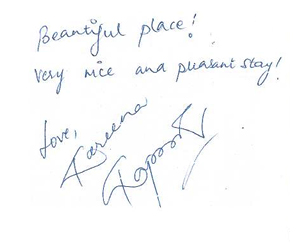 Beautiful place!
Very nice and pleasant stay!
Love,
Kareena
Kapoor